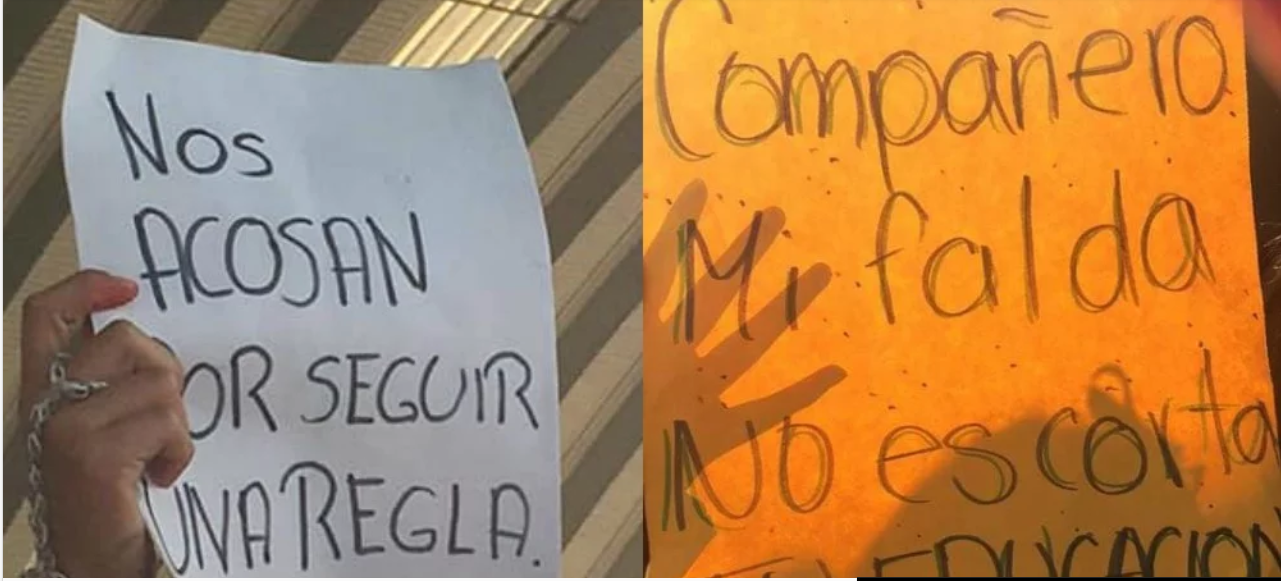 Nos
ACOSAN
POR SEGUIR
UNA REGLA.
Compañero
Mi falda
No es corta
TU EDUCACION